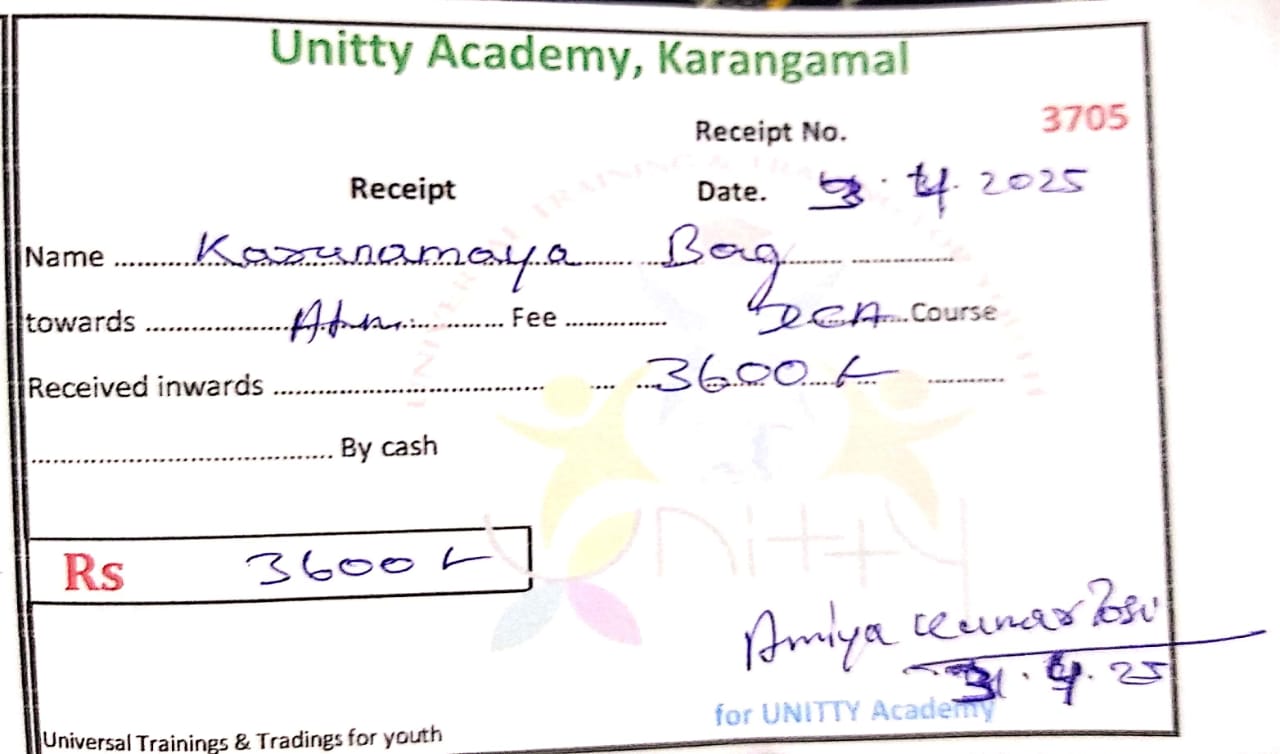 Unitty Academy, Karangamal
Receipt No. 3705
Receipt Date. 3.4.2025
Name .......... Karunamaya Bag ..........
towards .......... Atm. .......... Fee .......... DCA ..... Course
Received inwards .......... 3600/- ..........
.......... By cash
Rs 3600/-
Amiya Kumar
.4.25
for UNITTY Academy
Universal Trainings & Tradings for youth
Unitty